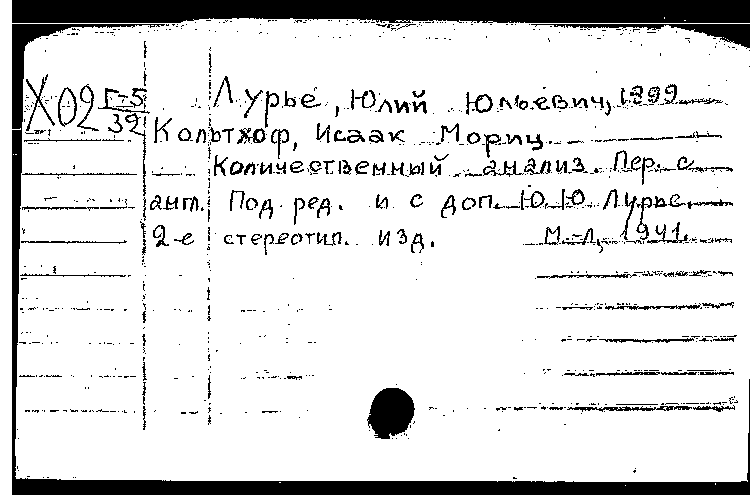 Х02 Г-5/32 Лурье, Юлий Юльевич, 1899
Кольтхоф, Исаак Мориц
Количественный анализ. Пер. с
англ. Под ред. и с доп. Ю.Ю. Лурье.
2-е стереотип. изд. М.-Л, 1941.